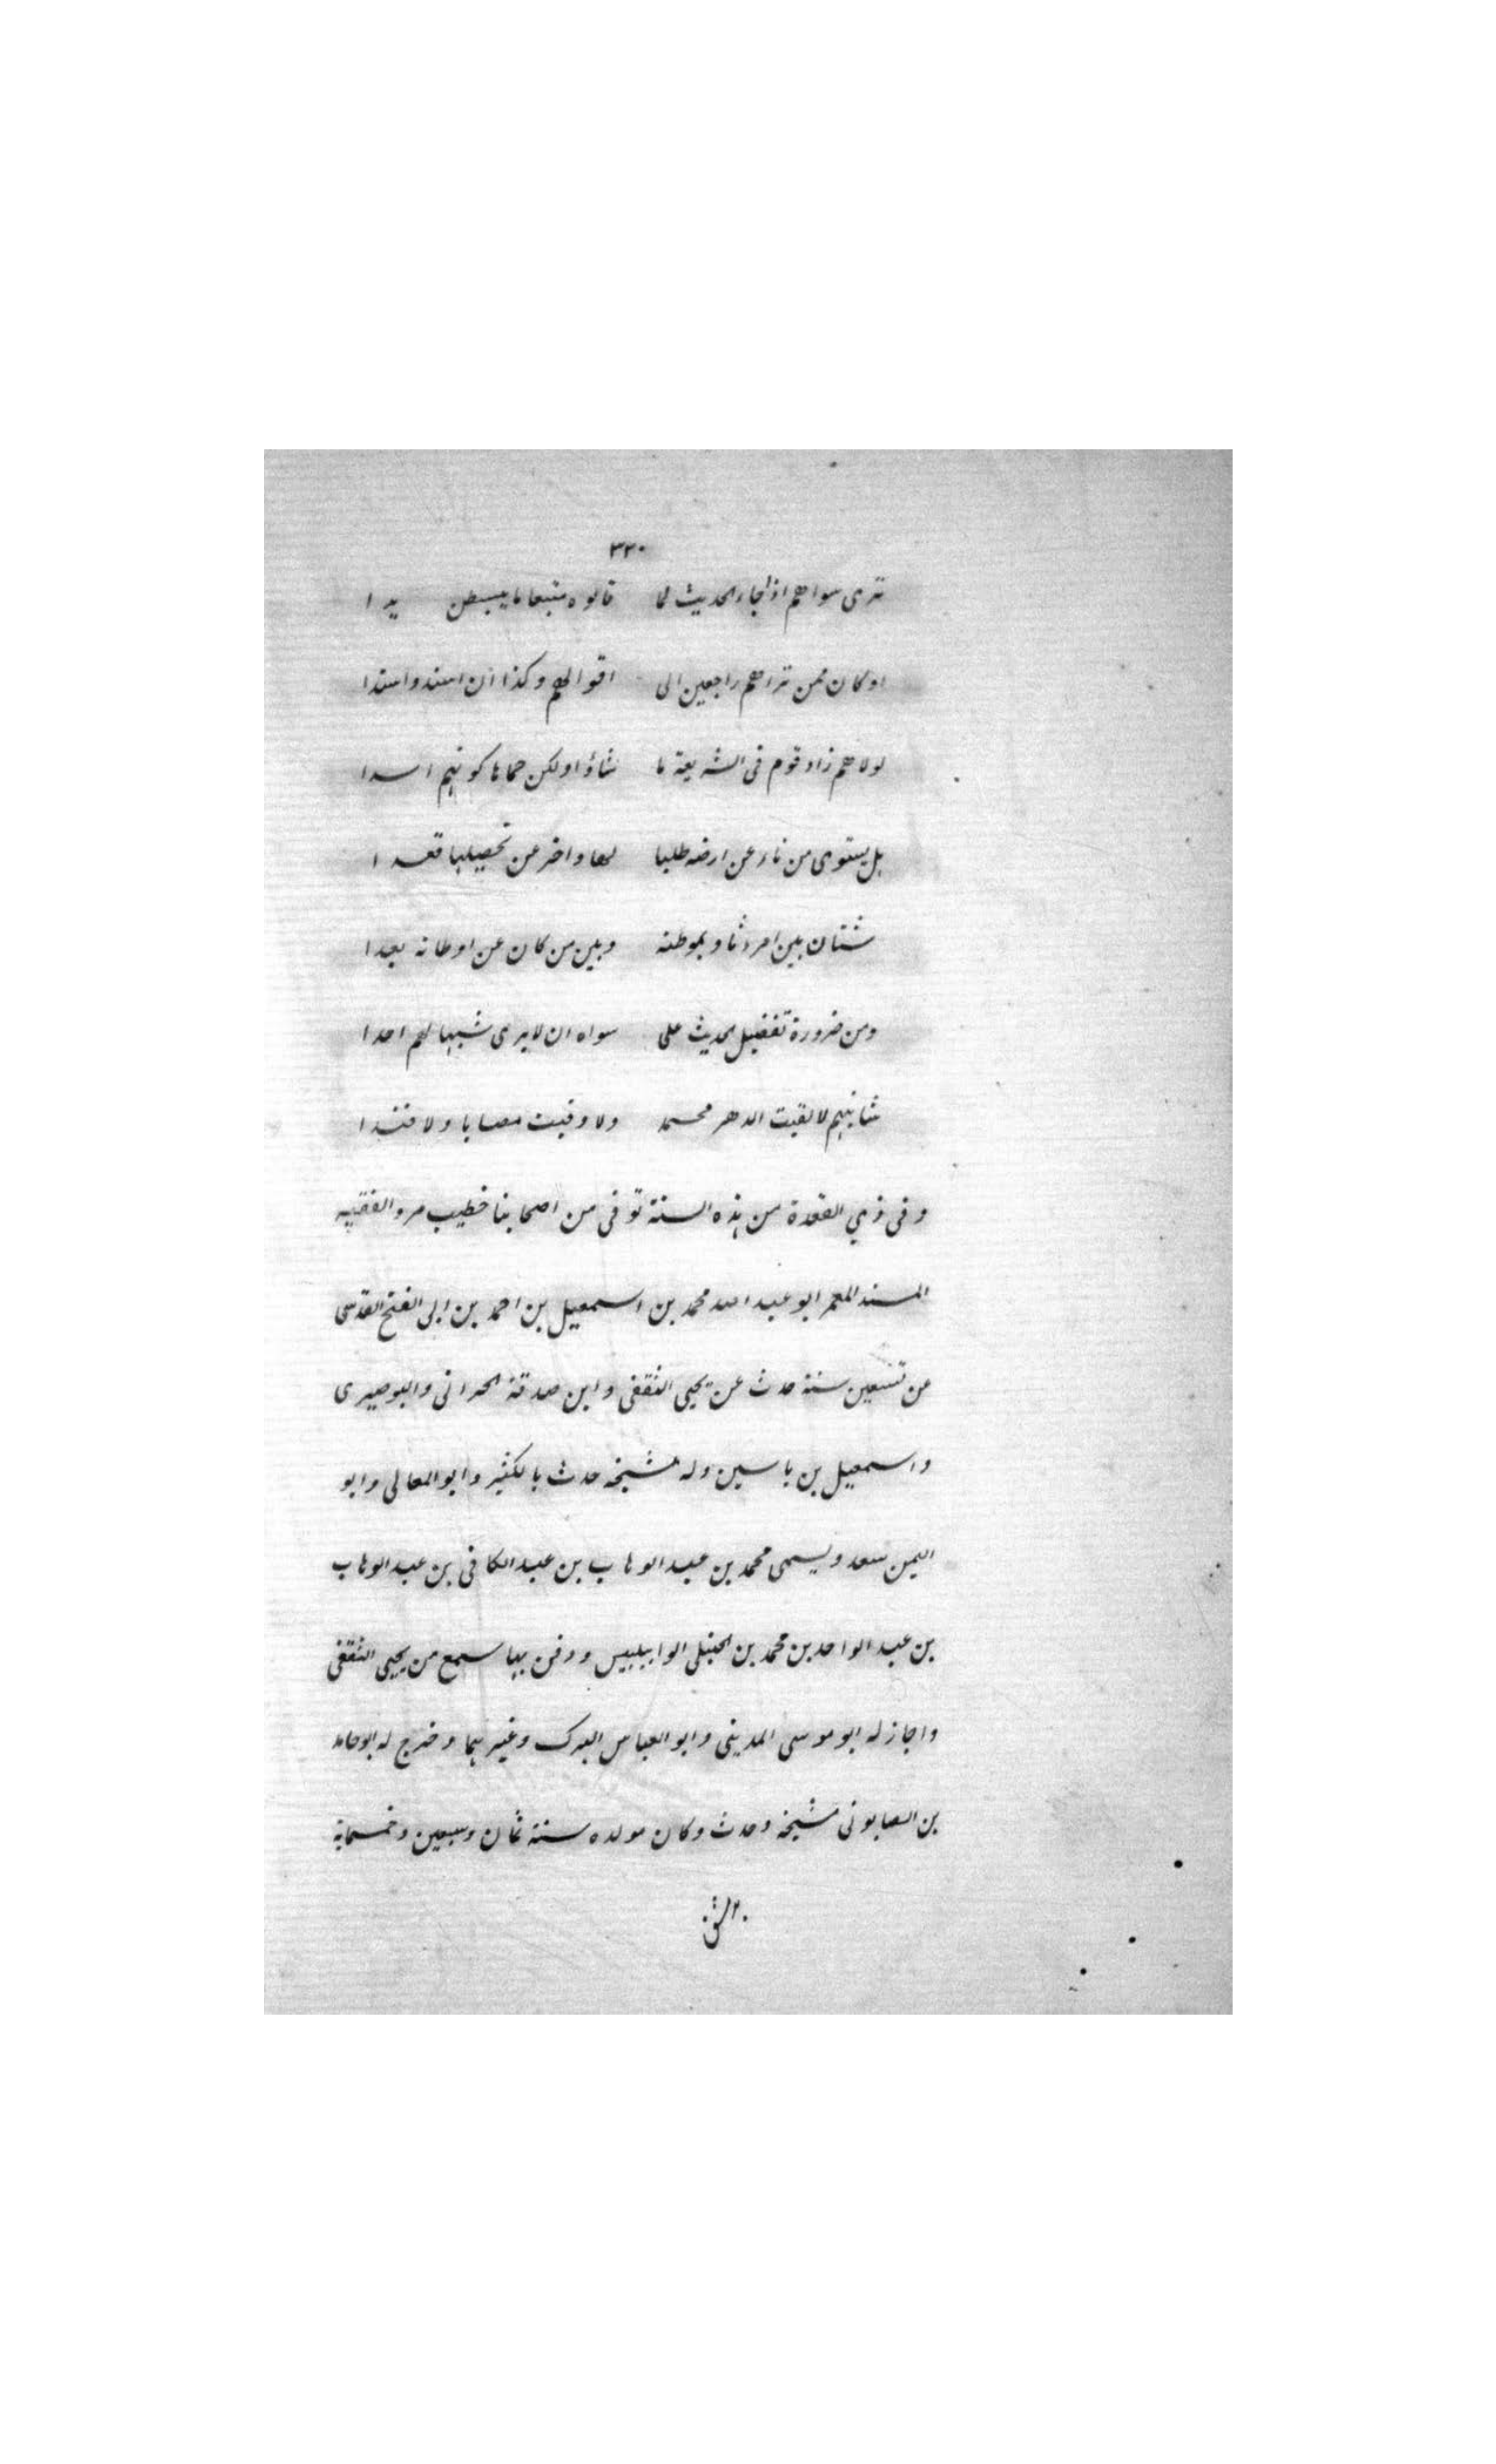 ٣٣٠
ترى سواهم اذا جاء الحديث لما قالوه متبعا ما يبسطن يدا
او كان ممن تراهم راجعين الى اقوالهم وكذا ان اسند واسندا
لولاهم زاد قوم فى الشريعة ما شاؤا ولكن حماها كونهم اسدا
بل يستوى من ناء عن ارضه طلبا لها واخر عن تحصيلها قعدا
شتان بين امرء ثاو بموطنه وبين من كان عن اوطانه بعدا
ومن ضرورة تفضيل الحديث على سواه ان لا يرى شبها لهم احدا
شانيهم لا لقيت الدهر محمد ولا وقيت مصابا ولا فندا
وفى ذي القعدة من هذه السنة توفى من اصحابنا خطيب مردا الفقيه
المسند المعمر ابو عبد الله محمد بن اسمعيل بن احمد بن ابى الفتح القدسى
عن تسعين سنة حدث عن يحيى الثقفى وابن صدقة الحرانى والبوصيرى
واسمعيل بن ياسين وله مشيخة حدث بالكثير وابو المعالى وابو
اليمن سعد ويسمى محمد بن عبد الوهاب بن عبد الكافى بن عبد الوهاب
بن عبد الواحد بن محمد بن الحنبلى الوا ببلبيس ودفن بها سمع من يحيى الثقفى
واجاز له ابو موسى المدينى وابو العباس الترك وغيرهما وخرج له ابو حامد
بن الصابونى مشيخة وحدث وكان مولده سنة ثمان وسبعين وخمسماية